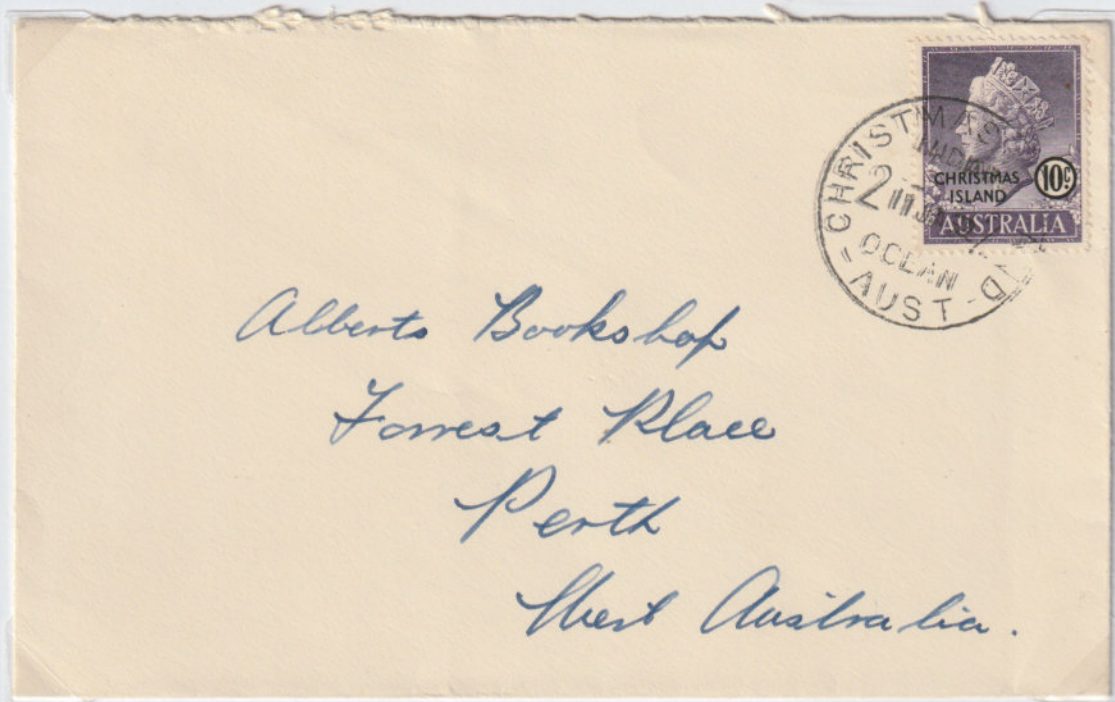 CHRISTMAS
ISLAND
10c
AUSTRALIA
CHRISTMAS
2
OCEAN
AUST
Alberts Bookshop
Forrest Place
Perth
West Australia.